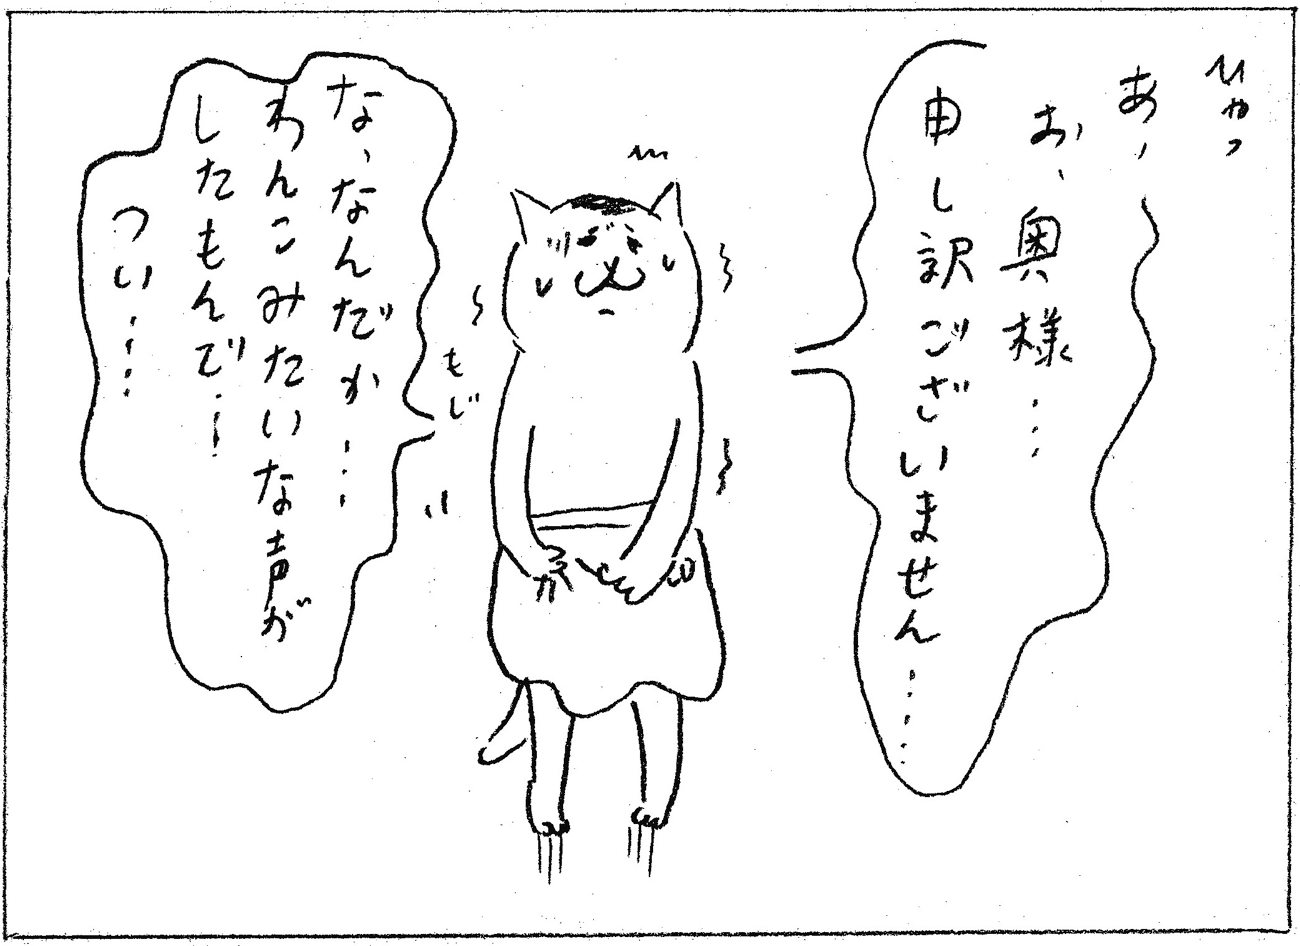 ひゃっ
あ、
お、奥様…
申し訳ございません……
もじ
な、なんだか…
わんこみたいな声が
したもんで…
つい……